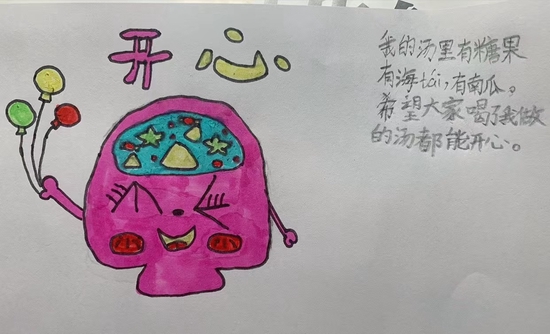 开心
我的汤里有糖果
有海tái,有南瓜。
希望大家喝了我做
的汤都能开心。